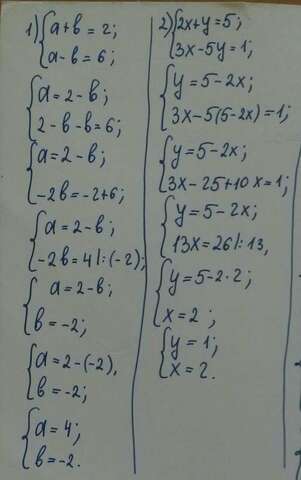 1) {a+в=2;
a-в=6;
{a=2-в;
2-в-в=6;
{a=2-в;
-2в=-2+6;
{a=2-в;
-2в=4|:(-2);
{a=2-в;
в=-2;
{a=2-(-2),
в=-2;
{a=4;
в=-2.
2) {2x+y=5;
3x-5y=1;
{y=5-2x;
3x-5(5-2x)=1;
{y=5-2x;
3x-25+10x=1;
{y=5-2x;
13x=26|:13,
{y=5-2·2;
x=2;
{y=1;
x=2.